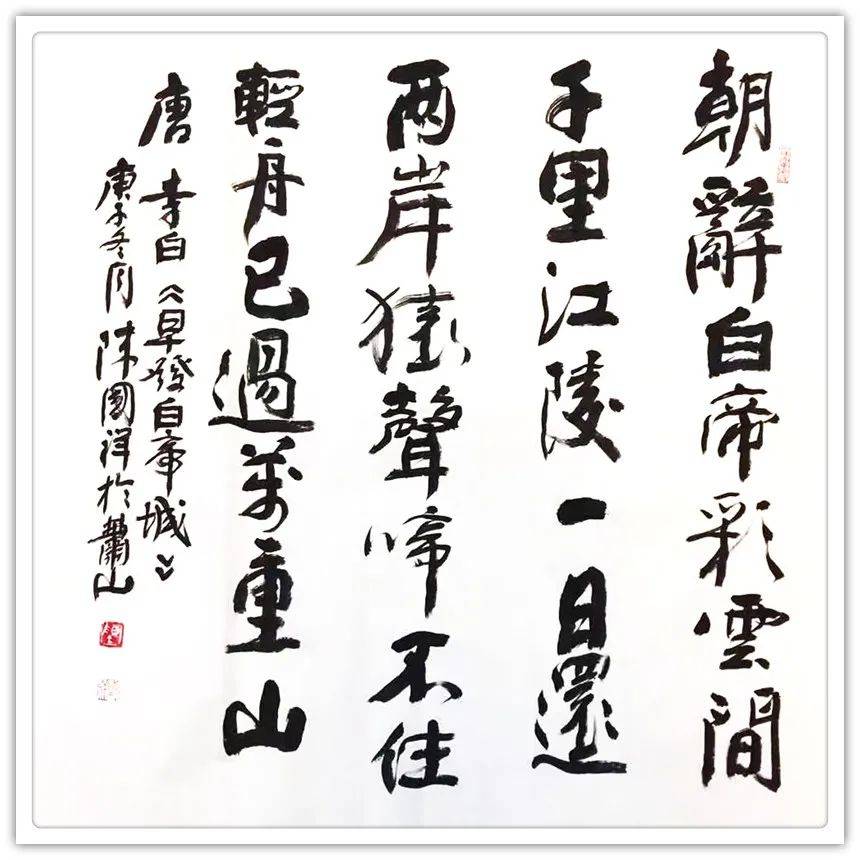 朝辭白帝彩雲間
千里江陵一日還
兩岸猿聲啼不住
輕舟已過萬重山
唐 李白《早發白帝城》
庚子冬月 陳國祥於蕭山